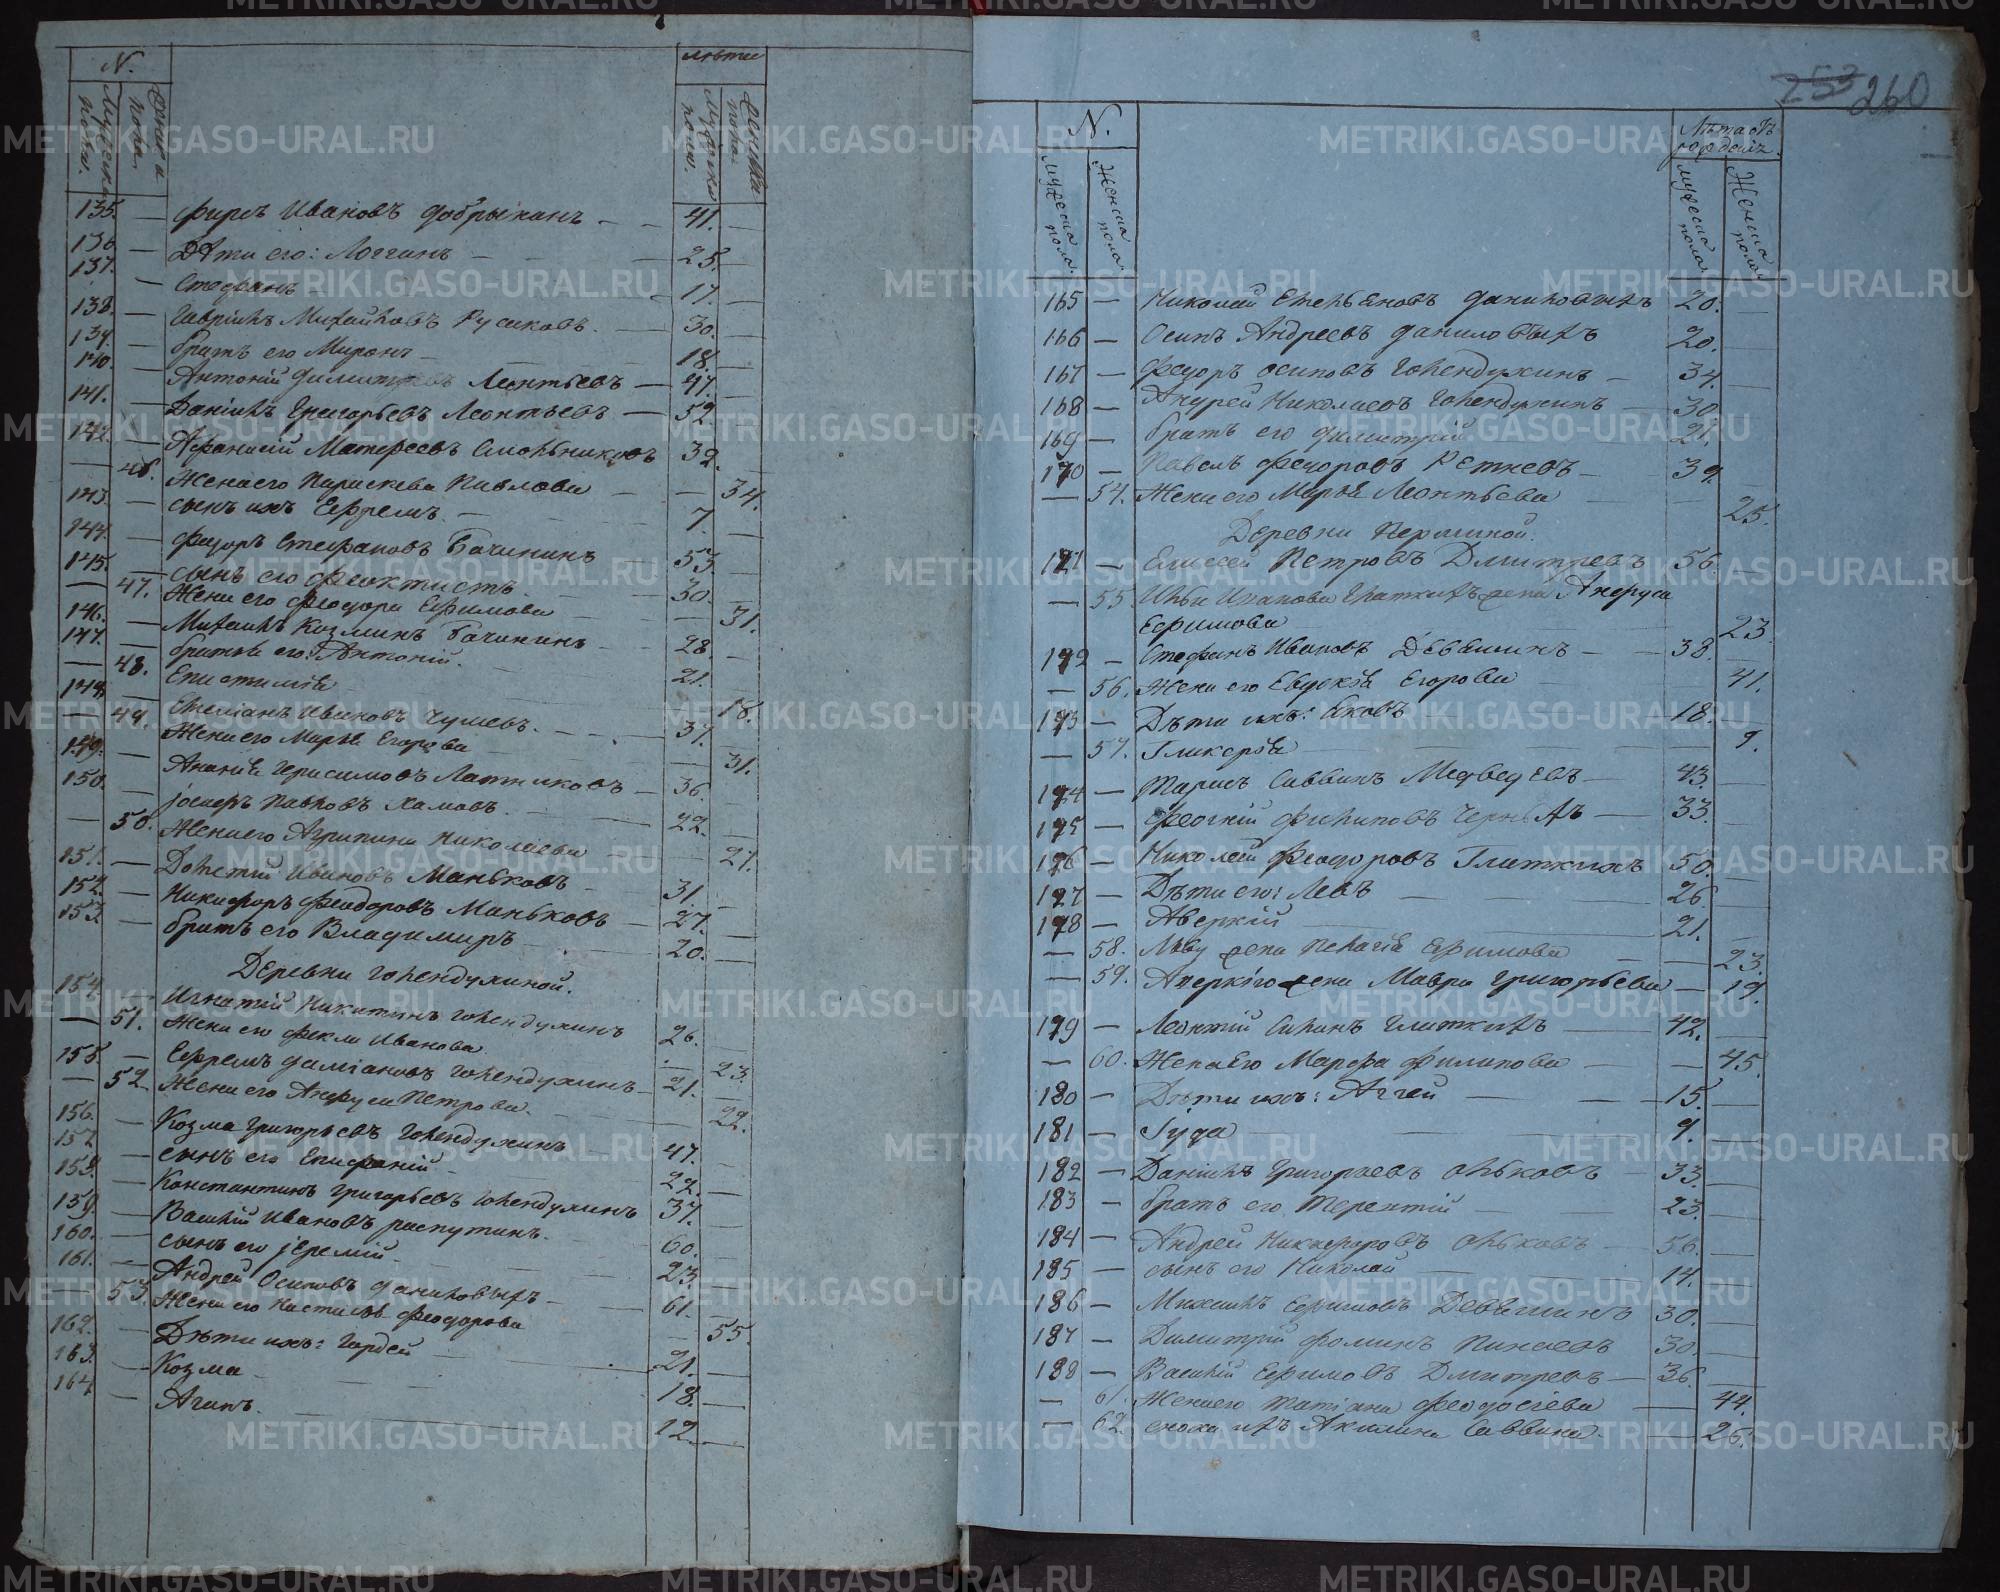 N.
лѣта
Мужеска пола.
Женска пола.
Мужеска пола.
Женска пола.
135. — Фирсъ Ивановъ Добрынинъ — 41. —
136. — Дѣти его: Логгинъ — 25. —
137. — Стефанъ — 17. —
138. — Гавріилъ Михайловъ Русаковъ. — 30. —
139. — братъ его Миронъ — 18. —
140. — Антоній Димитріевъ Леонтьевъ — 47. —
141. — Даніилъ Григорьевъ Леонтьевъ — 52. —
142. — Афанасій Матфеевъ Смольниковъ 32. —
— 46. Жена его Параскева Павлова — 34.
143. — сынъ ихъ Ефремъ. — 7. —
144. — Федоръ Стефановъ Бачининъ — 53. —
145. — сынъ его Феоктистъ. — 30. —
— 47. Жена его Феодора Ефимова — 31.
146. — Михаилъ Козминъ Бачининъ — 28. —
147. — братья его: Антоній. — 21. —
— 48. Епистимія — 18.
148. — Емеліанъ Ивановъ Чушевъ. — 37. —
— 49. Жена его Марья Егорова — 31.
149. — Ананія Герасимовъ Латниковъ — 36. —
150. — Іосифъ Павловъ Хамовъ. — 22. —
— 50. Жена его Агрипина Николаева — 27.
151. — Долетій Ивановъ Маньковъ — 31. —
152. — Никифоръ Феодоровъ Маньковъ — 27. —
153. — братъ его Владимиръ — 20. —
Деревни Голендухиной.
154. — Игнатій Никитинъ Голендухинъ 26. —
— 51. Жена его Фекла Иванова — 23.
155. — Ефремъ Даміановъ Голендухинъ — 21. —
— 52. Жена его Анфуса Петрова. — 22.
156. — Козма Григорьевъ Голендухинъ 47. —
157. — сынъ его Епифаній — 22. —
158. — Константинъ Григорьевъ Голендухинъ 37. —
159. — Василій Ивановъ Распутинъ. — 60. —
160. — сынъ его Іеремій — 23. —
161. — Андрей Осиповъ Даниловыхъ — 61. —
— 53. Жена его Настасья Феодорова — 55.
162. — Дѣти ихъ: Гордей — 21. —
163. — Козма — 18. —
164. — Агапъ. — 12. —
253 260
N.
Лѣта отъ рожденія.
Мужеска пола.
Женска пола.
Мужеска пола.
Женска пола.
165 — Николай Емельяновъ Даниловыхъ 20. —
166 — Осипъ Андреевъ Даниловыхъ 20. —
167 — Федоръ Осиповъ Голендухинъ — 34. —
168 — Андрей Николаевъ Голендухинъ — 30 —
169 — братъ его Димитрій — 21. —
170 — Павелъ Федоровъ Ретневъ — 39. —
— 54. Жена его Марья Леонтьева — 25.
Деревни Першиной.
171 — Елисей Петровъ Дмитревъ 56. —
— 55 Ильи Иванова Глаткихъ жена Анфуса
Ефимова — 23.
172 — Стефанъ Ивановъ Девяшинъ — 38. —
— 56. Жена его Евдокія Егорова — 41.
173 — Дѣти ихъ: Яковъ — 18. —
— 57. Гликерія — 9.
174 — Тарасъ Саввинъ Медведевъ — 43. —
175 — Феогній Филиповъ Черныхъ — 33. —
176 — Николай Феодоровъ Глаткихъ 50. —
177 — Дѣти его: Левъ — 26. —
178 — Аверкій — 21. —
— 58. Льву жена Пелагія Ефимова — 23.
— 59. Аверкіго жена Мавра Григорьева — 19.
179 — Леонтій Силинъ Глаткихъ — 42. —
— 60. Жена его Марфа Филипова — 45.
180 — Дѣти ихъ: Аггей — 15. —
181 — Іуда — 9. —
182 — Даніилъ Григорьевъ Ольковъ — 33. —
183 — братъ его Терентій — 23. —
184 — Андрей Никифоровъ Ольковъ — 56. —
185 — сынъ его Николай — 14. —
186 — Михаилъ Ефимовъ Девяшинъ 30. —
187 — Димитрій Фоминъ Пинаевъ 30. —
188 — Василій Ефимовъ Дмитревъ — 36. —
— 61. Жена его Татіана Феодосіева — 44.
— 62. сноха ихъ Акилина Саввина. — 26.